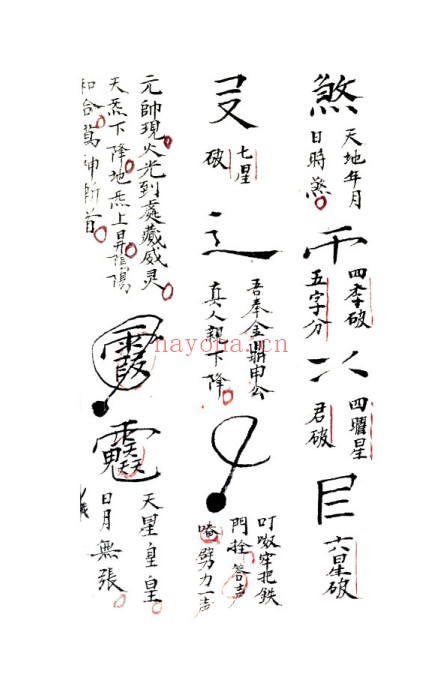 煞
天地年月
日時煞
四季破
五字分
四曜星
君破
六星破
七星
破
吾奉金鼎申公
真人親下降
叮嗷牢把鉄
門拴答声
唵劈力一声
元帥現火光到處藏威灵
天炁下降地炁上昇陰陽
和合萬神斬首
霞
天星皇皇
日月無張
nayona.cn